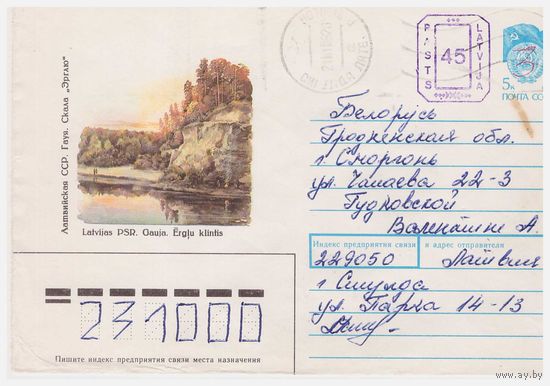 Латвийская ССР. Гауя. Скала „Эрглю"
Latvijas PSR. Gauja. Ērgļu klintis
PASTS 45 LATVIJA
5к
ПОЧТА СССР
Белорусь
Гродненская обл.
г. Сморгонь
ул. Чапаева 22-3
Гудковской
Валентине А.
Индекс предприятия связи и адрес отправителя
229050 Латвия
г Сигулда
ул. Парка 14-13
231000
Пишите индекс предприятия связи места назначения
www.ay.by